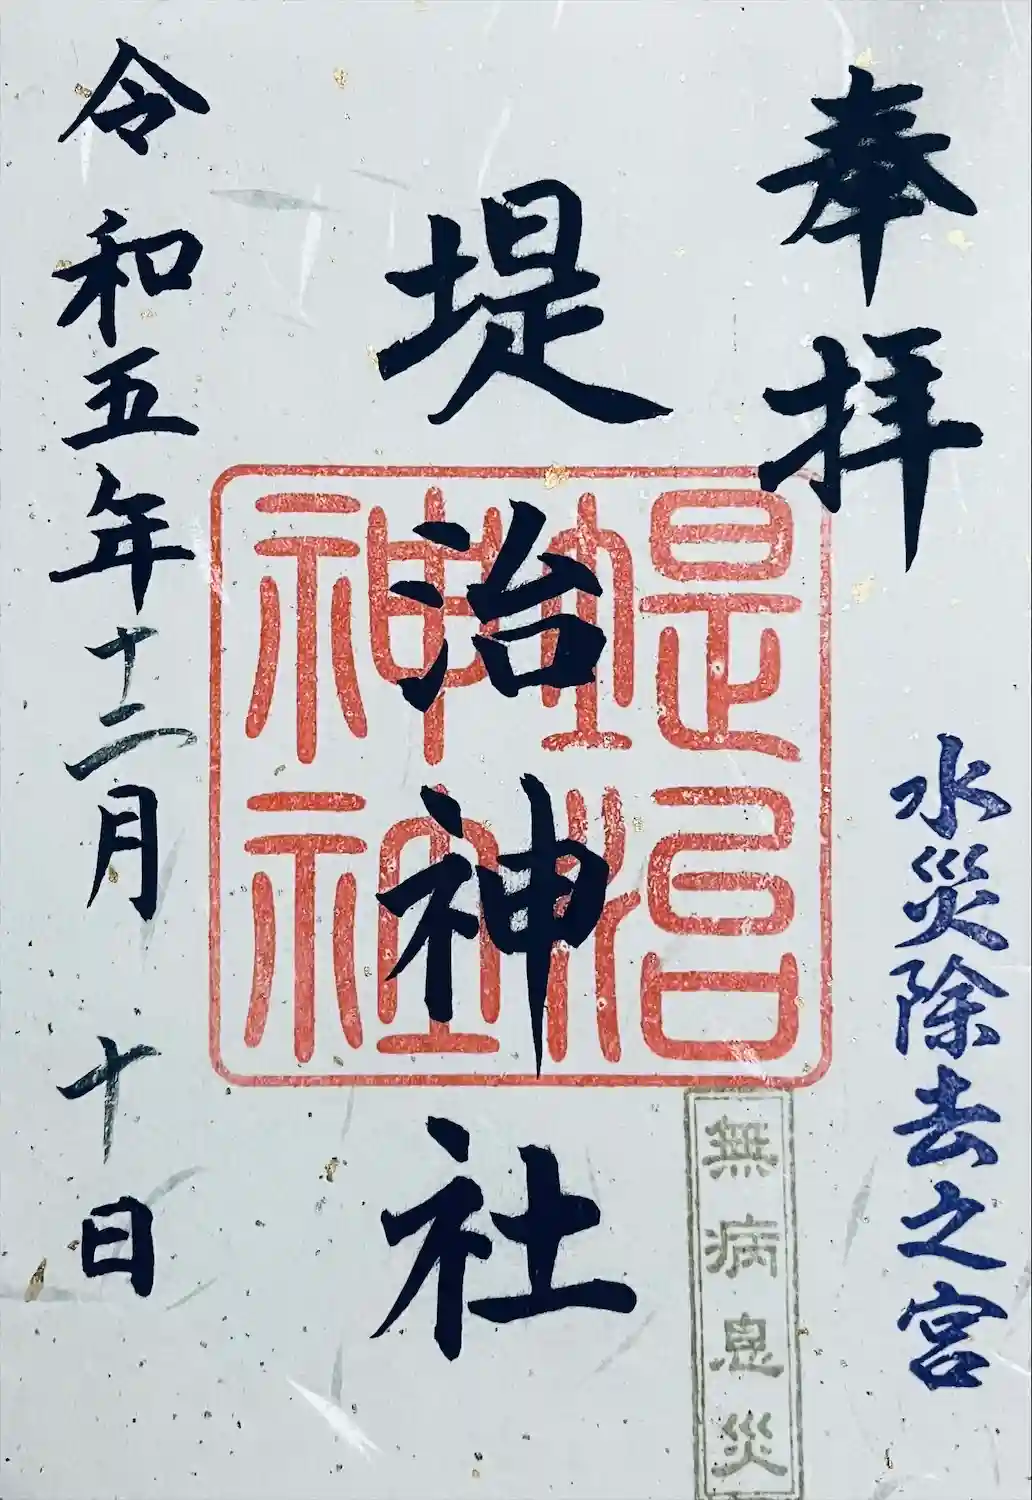 奉拝
水災除去之宮
堤治神社
堤治神社神璽
無病息災
令和五年十二月十日